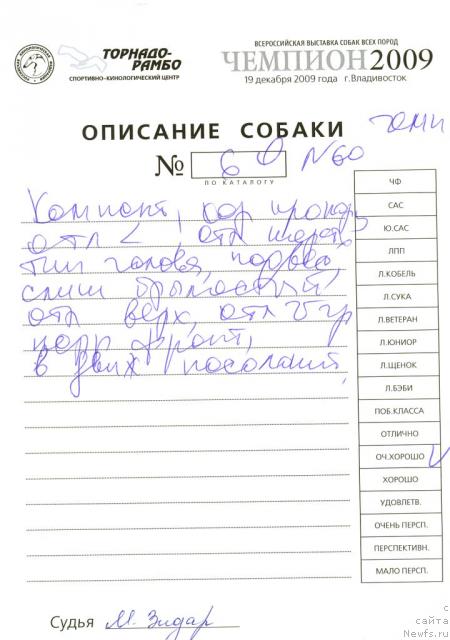 ТОРНАДО-РАМБО
СПОРТИВНО-КИНОЛОГИЧЕСКИЙ ЦЕНТР
ВСЕРОССИЙСКАЯ ВЫСТАВКА СОБАК ВСЕХ ПОРОД
ЧЕМПИОН 2009
19 декабря 2009 года г.Владивосток
ОПИСАНИЕ СОБАКИ
№ 6 N 60
ПО КАТАЛОГУ
Компакт, хор
отл <, отл шерсть
тип голова,
слиш
отл верх, отл
фронт,
в движ
ЧФ
САС
Ю.САС
ЛПП
Л.КОБЕЛЬ
Л.СУКА
Л.ВЕТЕРАН
Л.ЮНИОР
Л.ЩЕНОК
Л.БЭБИ
ПОБ.КЛАССА
ОТЛИЧНО
ОЧ.ХОРОШО V
ХОРОШО
УДОВЛЕТВ.
ОЧЕНЬ ПЕРСП.
ПЕРСПЕКТИВН.
МАЛО ПЕРСП.
Судья М. Зидар
с
сайта
Newfs.ru